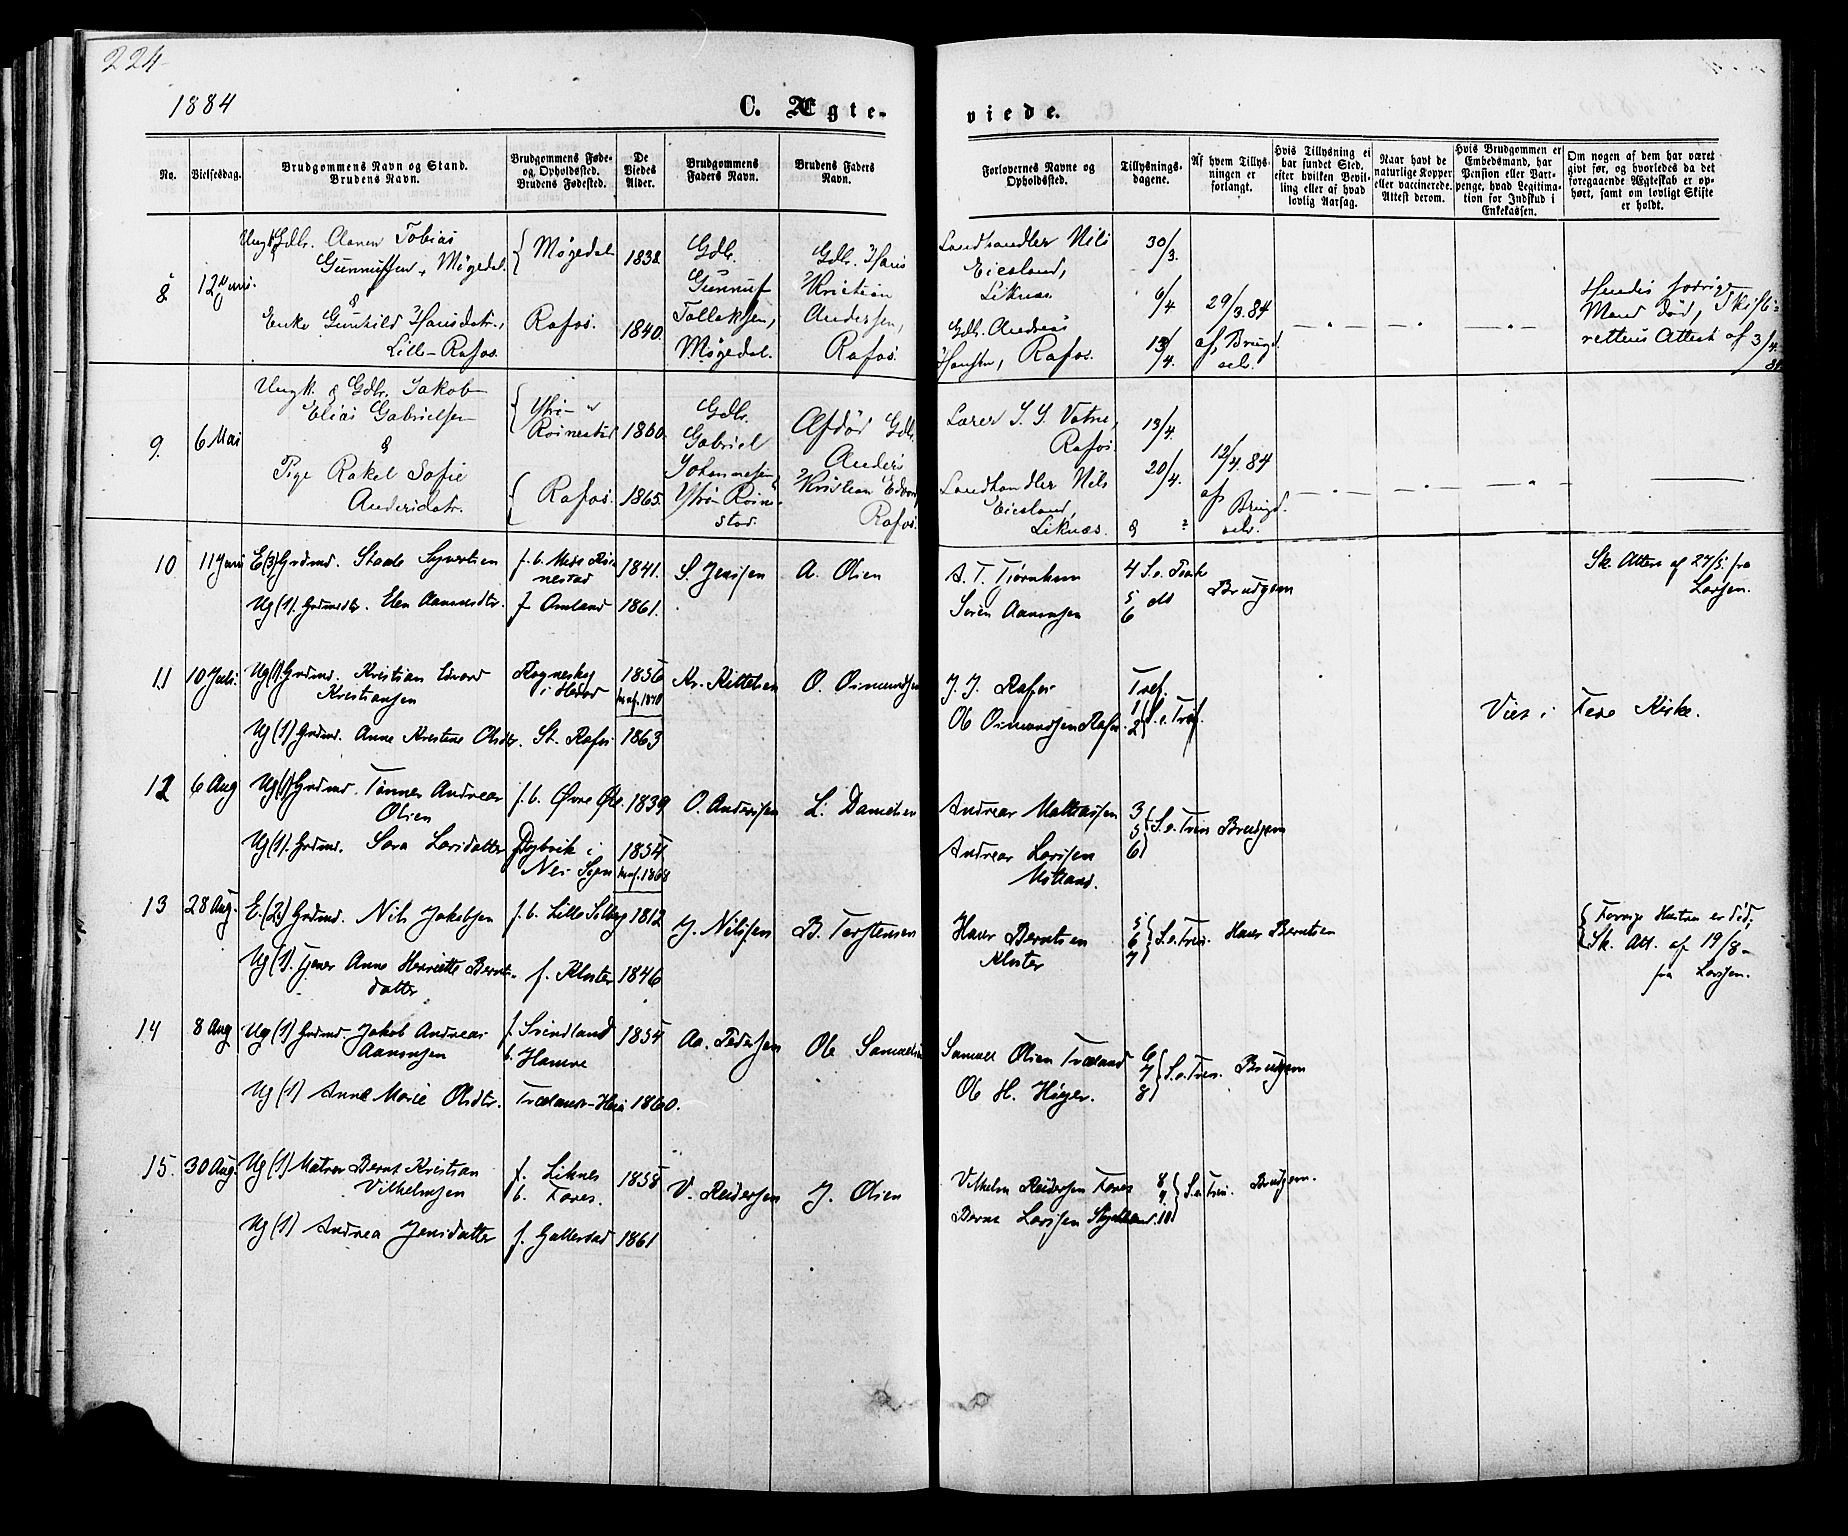 224
1884
C. Ægte-
viede.
No.
Vielsesdag.
Brudgommens Navn og Stand.
Brudens Navn.
Brudgommens Føde-
og Opholdssted.
Brudens Fødested.
De
Viedes
Alder.
Brudgommens
Faders Navn.
Brudens Faders
Navn.
Forlovernes Navne og
Opholdssted.
Tillysnings-
dagene.
Af hvem Tillys-
ningen er
forlangt.
Hvis Tillysning ei
har fundet Sted,
efter hvilken Bevil-
ling eller af hvad
lovlig Aarsag.
Naar havt de
naturlige Kopper
eller vaccinerede.
Attest derom.
Hvis Brudgommen er
Embedsmand, har
Pension eller Vart-
penge, hvad Legitima-
tion for Indskud i
Enkekassen.
Om nogen af dem har været
gift før, og hvorledes da det
foregaaende Ægteskab er op-
hørt, samt om lovligt Skifte
er holdt.
8
Gdbr. Aanen Tobias
Gunnufsen, Møgedal.
&
Enke Gunhild Hansdatr.,
Lille-Rafos.
Møgedal
Rafos.
1838
1840.
Gdbr.
Gunnuf
Tollaksen,
Møgedal.
Gdbr. Hans
Kristian
Andersen,
Rafos.
Landhandler Nils
Eiesland,
Liknæs.
Gdbr. Andreas
Hansen, Rafos.
30/3.
6/4
13/4.
29/3.84
af Brudg.
selv.
Hendes forrige
Mand død, Skifte-
rettens Attest af 3/4.
9.
6 Mai
Ungk. & Gdbr. Jakob
Elias Gabrielsen
&
Pige Rakel Sofie
Andersdatr.
Rafos.
1860.
1865.
Gdbr.
Gabriel
Johannesen,
Afdød Gdbr.
Anders
Kristian
Rafos.
Lærer S. S. Vatne,
Rafos.
Landhandler Nils
Eiesland,
Liknæs.
13/4.
20/4.
12/4.84
af
Brudg.
selv.
10
11 Juni
E (3) Grdmd. Staale Syvertsen
Ug (1). Grdmdtr. Elen Aanensdtr.
nestad
f Omland
1841.
1861.
S. Jenssen
A. Olsen
A. T. Tjørnhom
Søren Aanensen
4
5
6
Brudgom
Sk. Attest af 27/5. fra
Larsen.
11
10 Juli.
Ug (1) Grdmd. Kristian Edvard
Kristiansen
Ug (1) Grdmd. Anne Kristine Olsdtr.
i Herad
St. Rafos
1856
1863
Kr. Kittelsen
O. Osmundsen
J. J. Rafos
Ole Osmundsen Rafos
1
2
Viet i Feda Kirke.
12
6 Aug
Ug (1) Grdmd. Tønnes Andreas
Olsen
Ug (1). Grdmd. Sara Larsdatter
f. b. Øvre Øie.
1839
1854
O. Andersen
L. Danielsen
Andreas Mathiassen
Andreas Larssen
3
5
6
Brudgom
13
28 Aug.
E. (2) Grdmd. Nils Jakobsen
Ug (1). Tjener Anne Henriette Bernt-
datter
f. Kloster
1812
1846
J. Nilssen
B. Torstensen
Hans Berntsen
Kloster
5
6
7
Hans Berntsen
Forrige Hustru er død;
Sk. Att. af 19/8-
fra Larssen.
14
8 Aug
Ug (1) Grdmd. Jakob Andreas
Aanensen
Ug (1) Anne Marie Olsdtr.
f. Svindland
b. Hamre
1854
1860.
Aa. Pedersen
Ole Samuelsen
Samuel Olsen Træland
Ole H. Høyer.
6
7
8
Brudgom
15.
30 Aug.
Ug (1) Matros Bernt Kristian
Vilhelmsen
Ug (1) Andrea Jensdatter
f. Liknes
b. Fares.
f. Gullestad
1858
1861
V. Reiersen
J. Olsen
Vilhelm Reiersen Fares
Bernt Larssen
8
9
10
Brudgom.